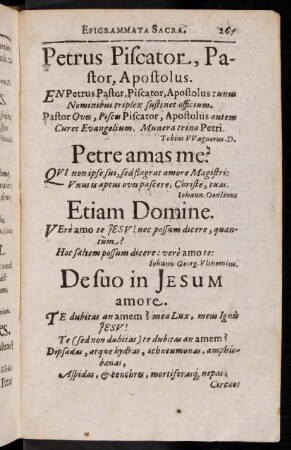 EPIGRAMMATA SACRA. 267
Petrus Piscator, Pa-
stor, Apostolus.
EN Petrus Pastor, Piscator, Apostolus: unus
Nominibus triplex sustinet officium.
Pastor Oves, Pisces Piscator, Apostolus autem
Curet Evangelium. Munera trina Petri.
Tobias VVagnerus D.
Petre amas me?
QVI non ipse sui, sed flagrat amore Magistri:
Vnus is aptus oves pascere, Christe, tuas.
Iohann
Etiam Domine.
VErè amo te JESV! nec possum dicere, quan-
tùm?
Hoc saltem possum dicere: verè amo te:
Iohann Georg.
De suo in JESUM
amore.
TE dubitas an amem? mea Lux, meus Ignis
JESV!
Te (sed non dubitas) te dubitas an amem?
Dipsadas, atque hydras, ichneumonas, amphis-
bænas,
Aspidas, & cenchres, mortiferasq; nepas;